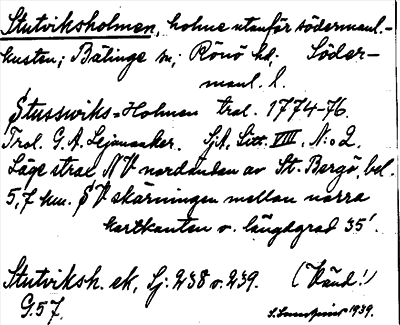 Stutviksholmen, holme utanför södermanl.-
kusten; Bälinge sn; Rönö hd; Söder-
manl. l.
Stusswiks-Holmen tral. 1774-76.
Trol. G. A. Lejonanker. SjA, Litt. VIII, N:o 2.
Läge strax NV nordändan av St. Bergö, bel.
5,7 km. SV skärningen mellan norra
kartkanten o. längdgrad 35'.
Stutviksh. ek, Sj. 238 o. 239. (Vänd!)
G57. 1939.